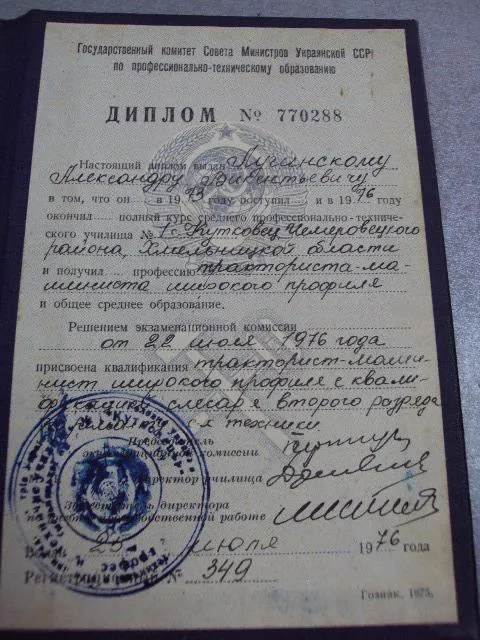 Государственный комитет Совета Министров Украинской ССР
по профессионально-техническому образованию
ДИПЛОМ № 770288
Настоящий диплом выдан Лучинскому
Александру Викентьевичу
в том, что он в 1973 году поступил и в 1976 году
окончил полный курс среднего профессионально-техниче-
ского училища № с. Кутковец Чемеровецкого
района, Хмельницкой области
и получил профессию тракториста-ма-
шиниста широкого профиля
и общее среднее образование.
Решением экзаменационной комиссии
от 22 июля 1976 года
присвоена квалификация тракторист-маши-
нист широкого профиля с квали-
фикацией слесаря второго разряда
с-х техники.
Председатель
экзаменационной комиссии
Директор училища
Заместитель директора
по учебно-производственной работе
25 июля 1976 года
Регистрационный № 349
Гознак. 1975.